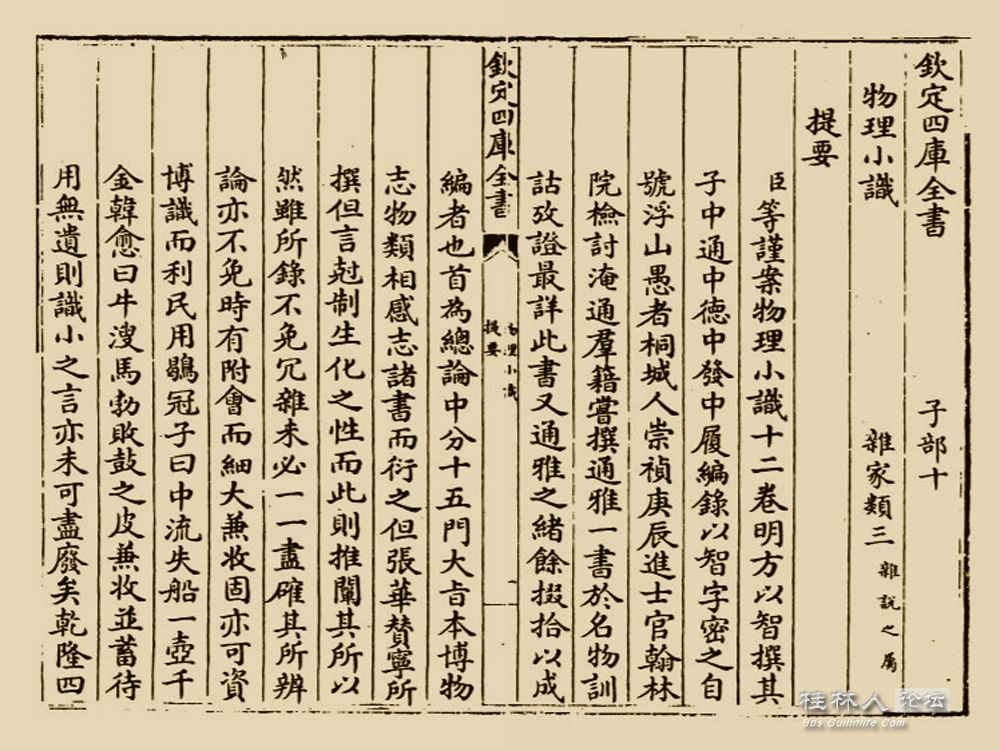 欽定四庫全書 子部十
物理小識 雜家類三 雜說之屬
提要
臣等謹案物理小識十二卷明方以智撰其
子中通中德中發中履編錄以智字密之自
號浮山愚者桐城人崇禎庚辰進士官翰林
院檢討淹通羣籍嘗撰通雅一書於名物訓
詁攷證最詳此書又通雅之緒餘掇拾以成
欽定四庫全書
物理小識
提要
一
編者也首為總論中分十五門大旨本博物
志物類相感志諸書而衍之但張華贊寧所
撰但言尅制生化之性而此則推闡其所以
然雖所錄不免冗雜未必一一盡確其所辨
論亦不免時有附會而細大兼收固亦可資
博識而利民用鶡冠子曰中流失船一壺千
金韓愈曰牛溲馬勃敗鼓之皮兼收並蓄待
用無遺則識小之言亦未可盡廢矣乾隆四
桂林人论坛
bbs.Guilinlife.com